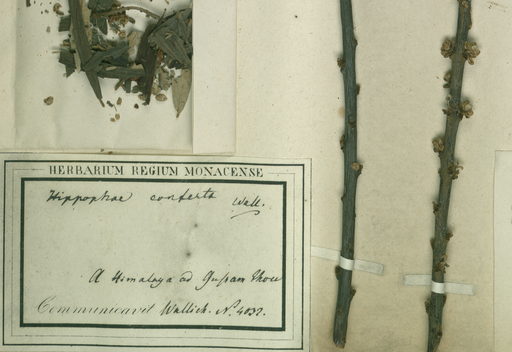 HERBARIUM REGIUM MONACENSE
Hippophae conferta Wall.
A Himalaya ad Gusam Thou
Communicavit Wallich. N. 4032.